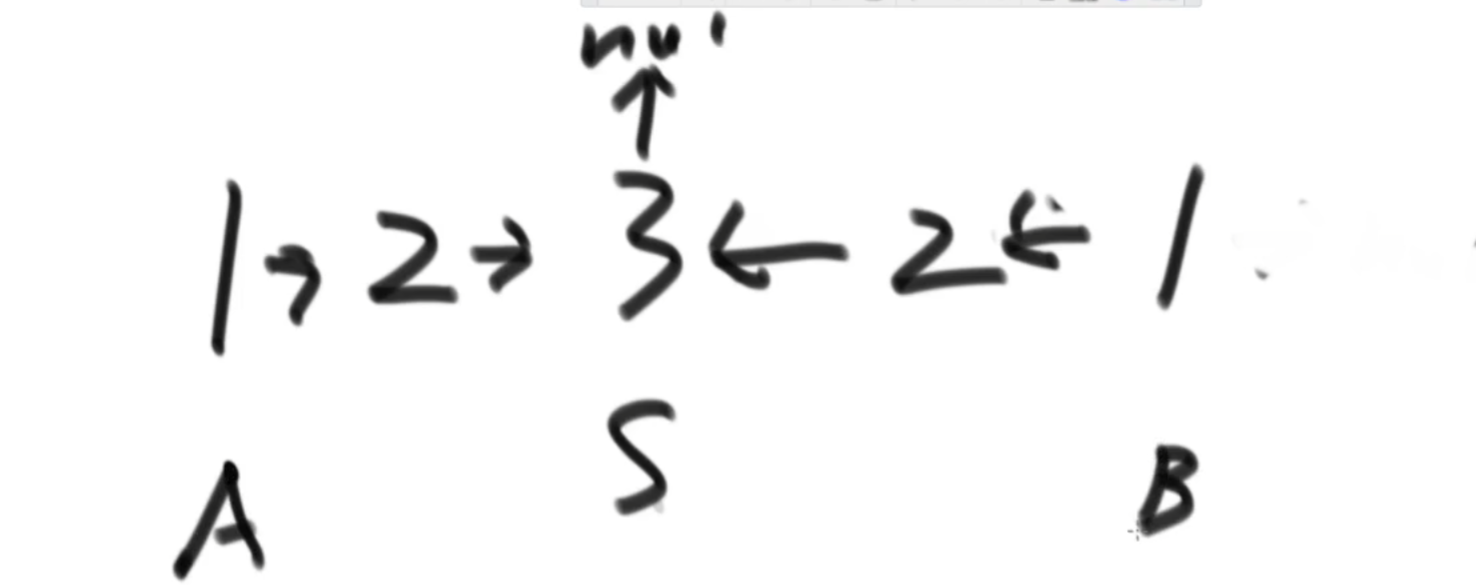 1 → 2 → 3 ← 2 ← 1
A S B